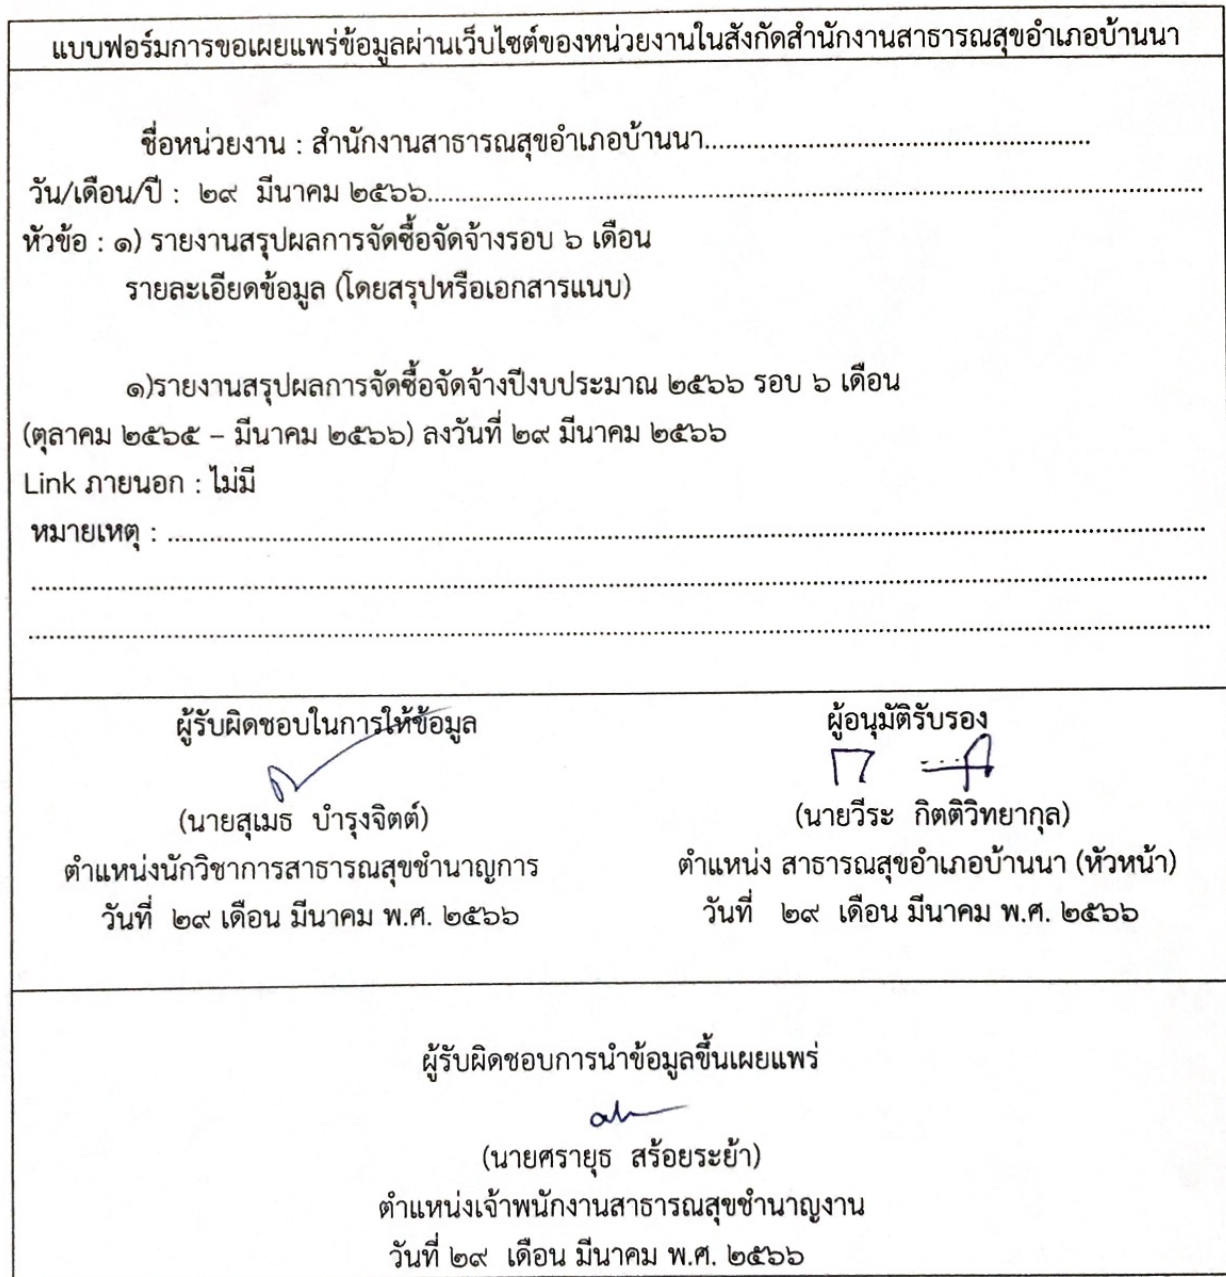 แบบฟอร์มการขอเผยแพร่ข้อมูลผ่านเว็บไซต์ของหน่วยงานในสังกัดสำนักงานสาธารณสุขอำเภอบ้านนา
ชื่อหน่วยงาน : สำนักงานสาธารณสุขอำเภอบ้านนา
วัน/เดือน/ปี : ๒๙ มีนาคม ๒๕๖๖
หัวข้อ : ๑) รายงานสรุปผลการจัดซื้อจัดจ้างรอบ ๖ เดือน
รายละเอียดข้อมูล (โดยสรุปหรือเอกสารแนบ)
๑)รายงานสรุปผลการจัดซื้อจัดจ้างปีงบประมาณ ๒๕๖๖ รอบ ๖ เดือน
(ตุลาคม ๒๕๖๕ – มีนาคม ๒๕๖๖) ลงวันที่ ๒๙ มีนาคม ๒๕๖๖
Link ภายนอก : ไม่มี
หมายเหตุ :
ผู้รับผิดชอบในการให้ข้อมูล
(นายสุเมธ บำรุงจิตต์)
ตำแหน่งนักวิชาการสาธารณสุขชำนาญการ
วันที่ ๒๙ เดือน มีนาคม พ.ศ. ๒๕๖๖
ผู้อนุมัติรับรอง
(นายวีระ กิตติวิทยากุล)
ตำแหน่ง สาธารณสุขอำเภอบ้านนา (หัวหน้า)
วันที่ ๒๙ เดือน มีนาคม พ.ศ. ๒๕๖๖
ผู้รับผิดชอบการนำข้อมูลขึ้นเผยแพร่
(นายศรายุธ สร้อยระย้า)
ตำแหน่งเจ้าพนักงานสาธารณสุขชำนาญงาน
วันที่ ๒๙ เดือน มีนาคม พ.ศ. ๒๕๖๖